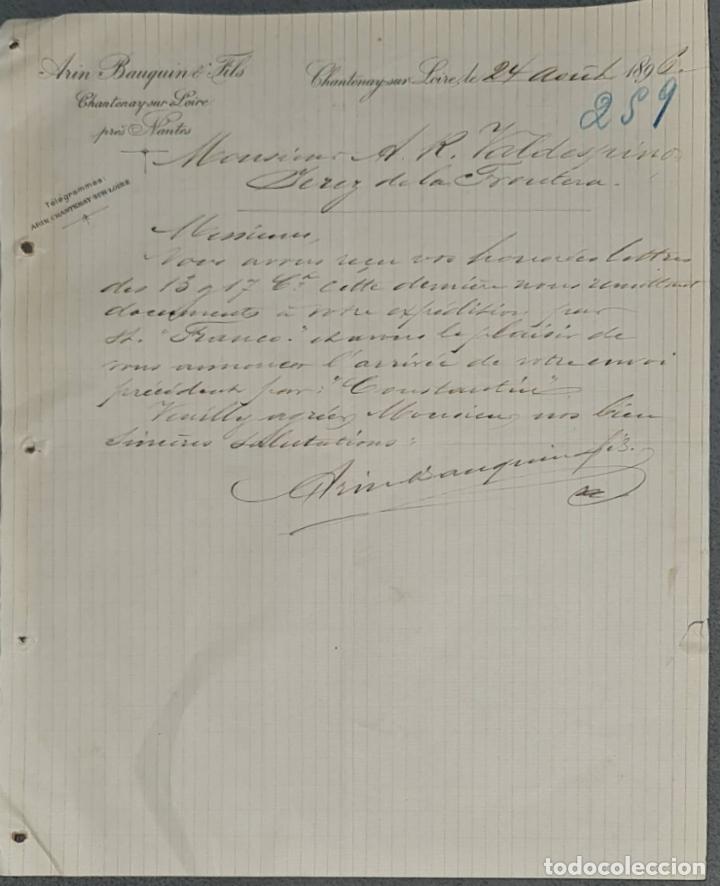 Arin Bauquin & Fils
Chantenay-sur-Loire
près Nantes
Chantenay-sur-Loire, le 24 août 1896.
259
Monsieur A. R. Valdespino
Jerez de la Frontera.
Télégrammes:
ARIN CHANTENAY-SUR-LOIRE
Messieurs,
Nous avons reçu vos honorées lettres
des 13 & 17 Ct cette dernière nous remettant
documents à votre expédition par
St. "Franco." et avons le plaisir de
vous annoncer l'arrivée de votre envoi
précédent par: "Constantin"
Veuillez agréer, Monsieur, nos bien
sincères salutations:
Arin Bauquin & fils.
todocoleccion